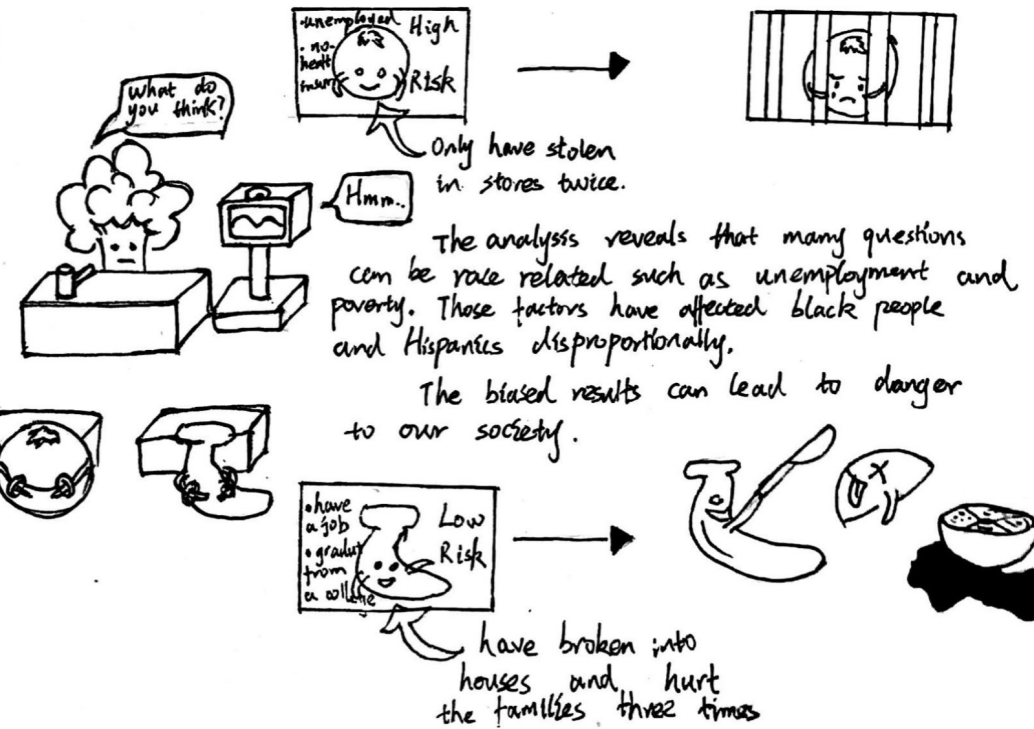 ·unemployed
· no
healt
insur
High
Risk
What do
you think?
Only have stolen
in stores twice.
Hmm..
The analysis reveals that many questions
can be race related such as unemployment and
poverty. Those factors have affected black people
and Hispanics disproportionally.
The biased results can lead to danger
to our society.
· have
a job
· gradut
from
a collage
Low
Risk
have broken into
houses and hurt
the families three times